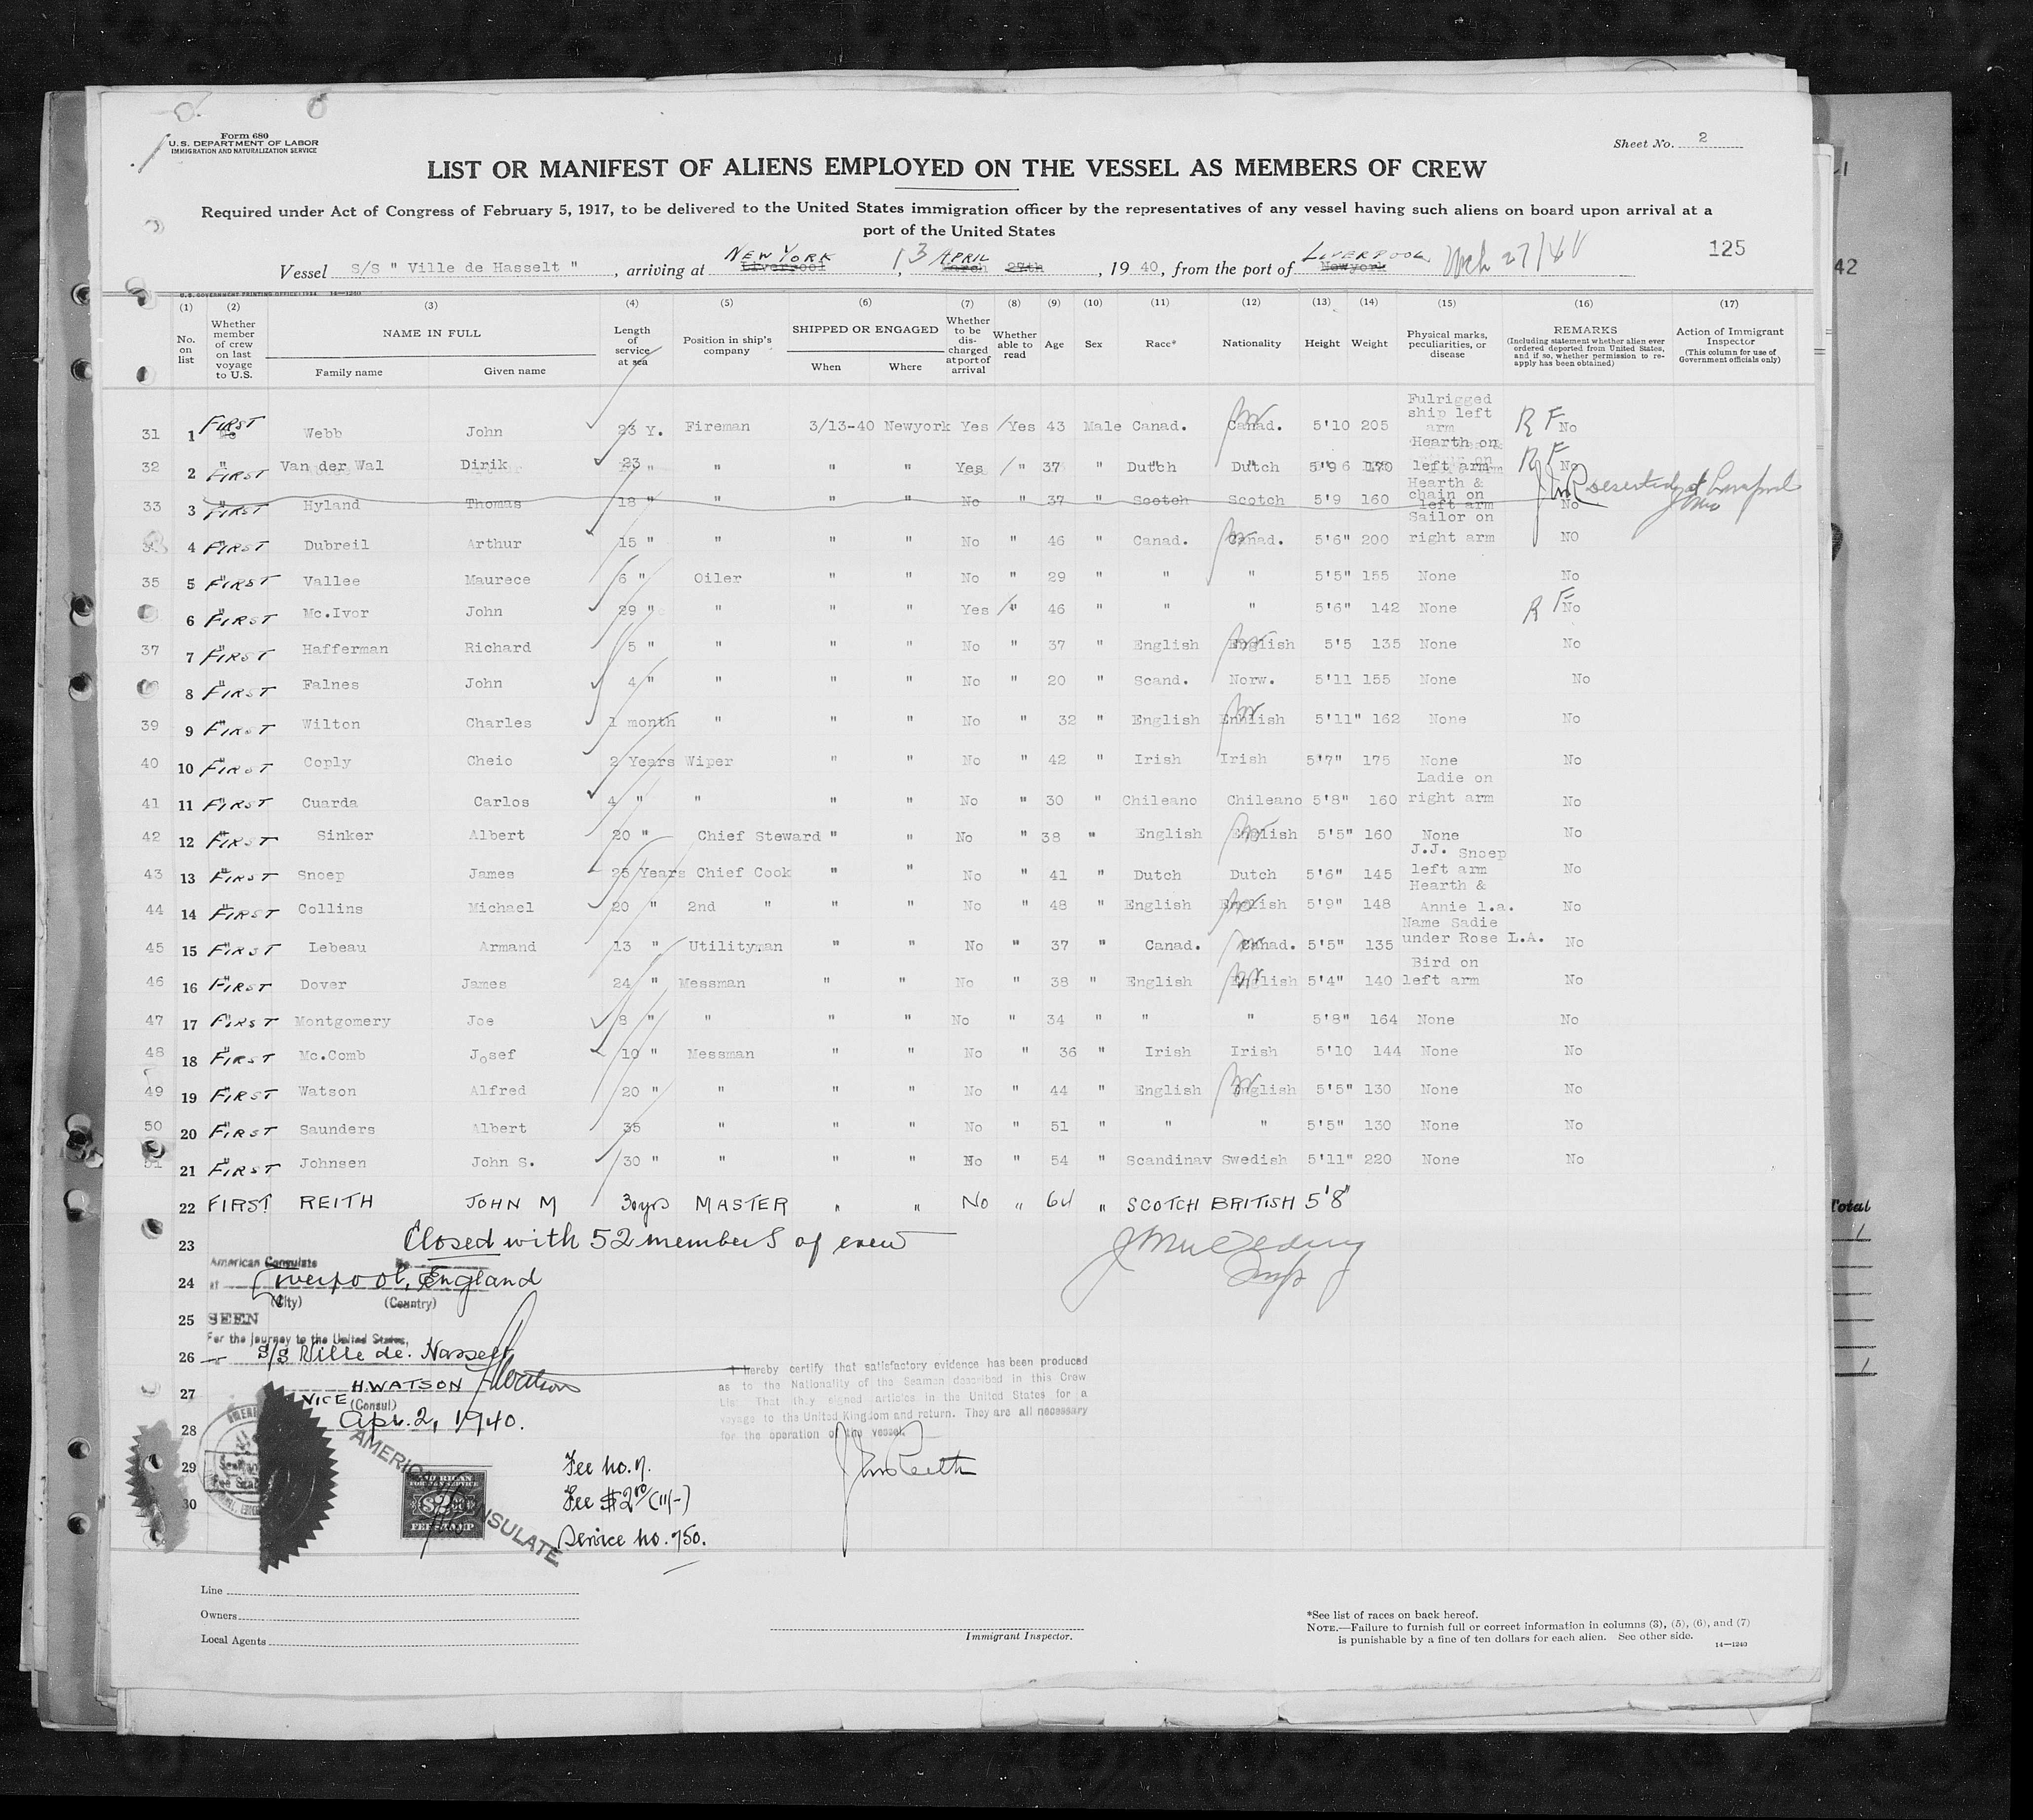 Form 680
U.S. DEPARTMENT OF LABOR
IMMIGRATION AND NATURALIZATION SERVICE
Sheet No. 2
LIST OR MANIFEST OF ALIENS EMPLOYED ON THE VESSEL AS MEMBERS OF CREW
Required under Act of Congress of February 5, 1917, to be delivered to the United States immigration officer by the representatives of any vessel having such aliens on board upon arrival at a
port of the United States
125
NEW YORK 13 APRIL LIVERPOOL
Vessel S/S " Ville de Hasselt ", arriving at Liverpool, March 28th, 1940, from the port of Newyork
U.S. GOVERNMENT PRINTING OFFICE: 1934 14—1240
(1) (2) (3) (4) (5) (6) (7) (8) (9) (10) (11) (12) (13) (14) (15) (16) (17)
No. on list
Whether member of crew on last voyage to U.S.
NAME IN FULL
Family name Given name
Length of service at sea
Position in ship's company
SHIPPED OR ENGAGED
When Where
Whether to be discharged at port of arrival
Whether able to read
Age
Sex
Race*
Nationality
Height
Weight
Physical marks, peculiarities, or disease
REMARKS
(Including statement whether alien ever ordered deported from United States, and if so, whether permission to reapply has been obtained)
Action of Immigrant Inspector
(This column for use of Government officials only)
31 1 FIRST Webb John 23 Y. Fireman 3/13-40 Newyork Yes Yes 43 Male Canad. Canad. 5'10 205 Fulrigged ship left arm R F No
32 2 " FIRST Van der Wal Dirik 23 " " " " Yes " 37 " Dutch Dutch 5'9 170 Hearth on left arm R F No
33 3 " FIRST Hyland Thomas 18 " " " " No " 37 " Scotch Scotch 5'9 160 Hearth & chain on left arm No
4 " FIRST Dubreil Arthur 15 " " " " No " 46 " Canad. Canad. 5'6" 200 Sailor on right arm NO
35 5 " FIRST Vallee Maurece 6 " Oiler " " No " 29 " " " 5'5" 155 None No
6 " FIRST Mc.Ivor John 29 " " " " Yes " 46 " " " 5'6" 142 None R F No
37 7 " FIRST Hafferman Richard 5 " " " " No " 37 " English English 5'5 135 None No
8 " FIRST Falnes John 4 " " " " No " 20 " Scand. Norw. 5'11 155 None No
39 9 " FIRST Wilton Charles 1 month " " " No " 32 " English English 5'11" 162 None No
40 10 " FIRST Coply Cheio 2 Years Wiper " " No " 42 " Irish Irish 5'7" 175 None No
41 11 " FIRST Cuarda Carlos 4 " " " " No " 30 " Chileano Chileano 5'8" 160 Ladie on right arm No
42 12 " FIRST Sinker Albert 20 " Chief Steward " " No " 38 " English English 5'5" 160 None No
43 13 " FIRST Snoep James 25 Years Chief Cook " " No " 41 " Dutch Dutch 5'6" 145 J.J. Snoep left arm No
44 14 " FIRST Collins Michael 20 " 2nd " " " No " 48 " English English 5'9" 148 Hearth & Annie l.a. No
45 15 " FIRST Lebeau Armand 13 " Utilityman " " No " 37 " Canad. Canad. 5'5" 135 Name Sadie under Rose L.A. No
46 16 " FIRST Dover James 24 " Messman " " No " 38 " English English 5'4" 140 Bird on left arm No
47 17 " FIRST Montgomery Joe 8 " " " " No " 34 " " " 5'8" 164 None No
48 18 " FIRST Mc.Comb Josef 10 " Messman " " No " 36 " Irish Irish 5'10 144 None No
49 19 " FIRST Watson Alfred 20 " " " " No " 44 " English English 5'5" 130 None No
50 20 " FIRST Saunders Albert 35 " " " No " 51 " " " 5'5" 130 None No
51 21 " FIRST Johnsen John S. 30 " " " " No " 54 " Scandinav Swedish 5'11" 220 None No
22 FIRST REITH JOHN M 30yrs MASTER " " No " 64 " SCOTCH BRITISH 5'8"
23 Closed with 52 members of crew
American Consulate No.
24 at Liverpool, England
(City) (Country)
25 SEEN
For the journey to the United States,
26 S/S Ville de Hasselt
H. WATSON
27 VICE (Consul)
28 Apr. 2, 1940.
29
30
I hereby certify that satisfactory evidence has been produced
as to the Nationality of the Seamen described in this Crew
List. That they signed articles in the United States for a
voyage to the United Kingdom and return. They are all necessary
for the operation of the vessel.
AMERICAN CONSULATE.
Fee no. 7.
Fee $2.00 (11/-)
Service no. 750.
AMERICAN
FEE STAMP
Line
Owners
Local Agents
Immigrant Inspector.
*See list of races on back hereof.
NOTE.—Failure to furnish full or correct information in columns (3), (5), (6), and (7)
is punishable by a fine of ten dollars for each alien. See other side.
14—1240
42
Total